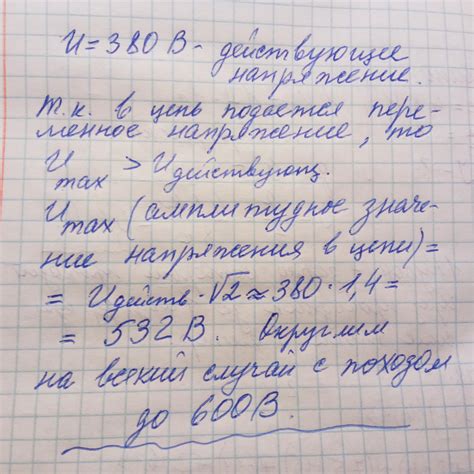 U = 380 В - действующее
напряжение.
т.к. в цепь подается пере-
менное напряжение, то
U max > U действующ.
U max (амплитудное значе-
ние напряжения в цепи) =
= U действ · √2 ≈ 380 · 1,4 =
= 532 В. Округлим
на всякий случай с походом
до 600 В.